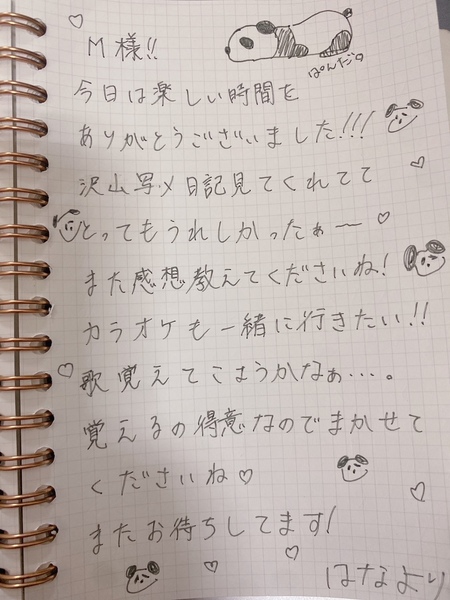 M様!!
ぱんだ
今日は楽しい時間を
ありがとうございました!!!
沢山写メ日記見てくれてて
とってもうれしかったぁー
また感想教えてくださいね!
カラオケも一緒に行きたい!!
歌覚えてこようかなぁ…。
覚えるの得意なのでまかせて
くださいね♡
またお待ちしてます!
はなより